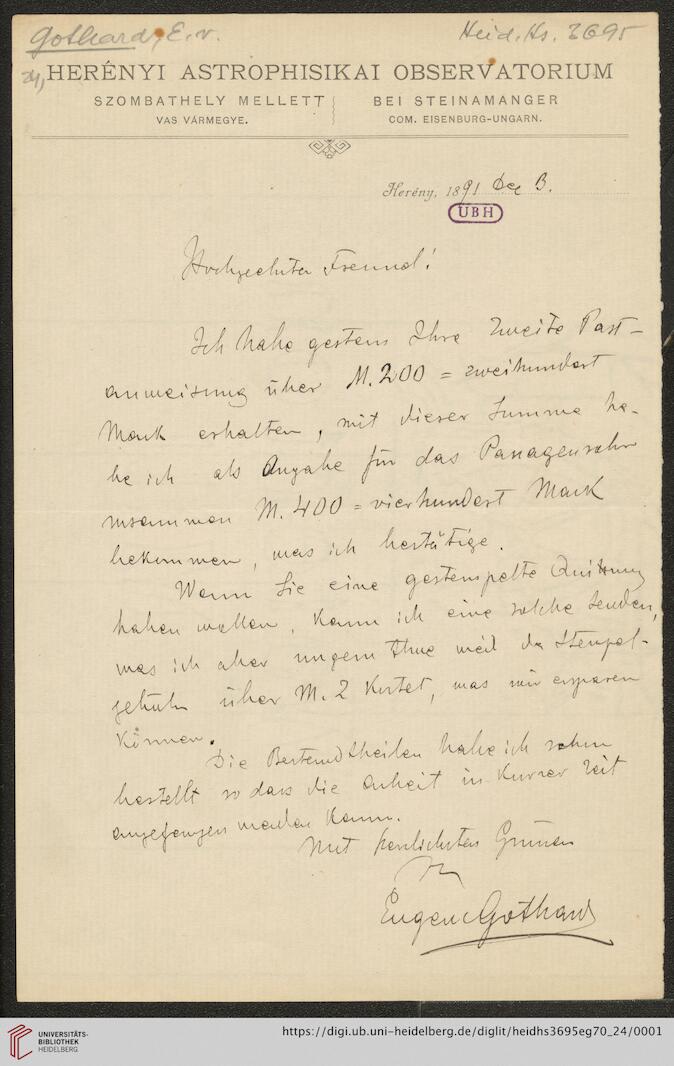 Gothard, E. v.
Heid. Hs. 3695
24,
HERÉNYI ASTROPHISIKAI OBSERVATORIUM
SZOMBATHELY MELLETT
BEI STEINAMANGER
VAS VÁRMEGYE.
COM. EISENBURG-UNGARN.
Herény, 1891 Dec 3.
UBH
Hochgeehrter Freund!
Ich habe gestern Ihre zweite Post-
anweisung über M. 200 = zweihundert
Mark erhalten, mit dieser Summe ha-
be ich als Angabe für das Passagenrohr
zusammen M. 400 = vierhundert Mark
bekommen, was ich bestätige.
Wenn Sie eine gestempelte Quittung
haben wollen, kann ich eine solche senden,
was ich aber ungern thue weil die Stempel-
gebühr über M. 2 kostet, was wir ersparen
können.
Die Bestandtheilen habe ich schon
bestellt so dass die Arbeit in kurzer Zeit
angefangen werden kann.
Mit herzlichsten Grüssen
Ihr
Eugen Gothard
UNIVERSITÄTS-
BIBLIOTHEK
HEIDELBERG
https://digi.ub.uni-heidelberg.de/diglit/heidhs3695eg70_24/0001